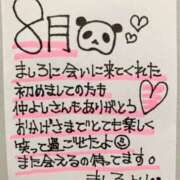 8月
ましろに会いに来てくれた
初めましての方も
仲よしさんもありがとう
おかげさまでとても楽しく
笑って過ごせたよ
また会えるの待ってます。
ましろより